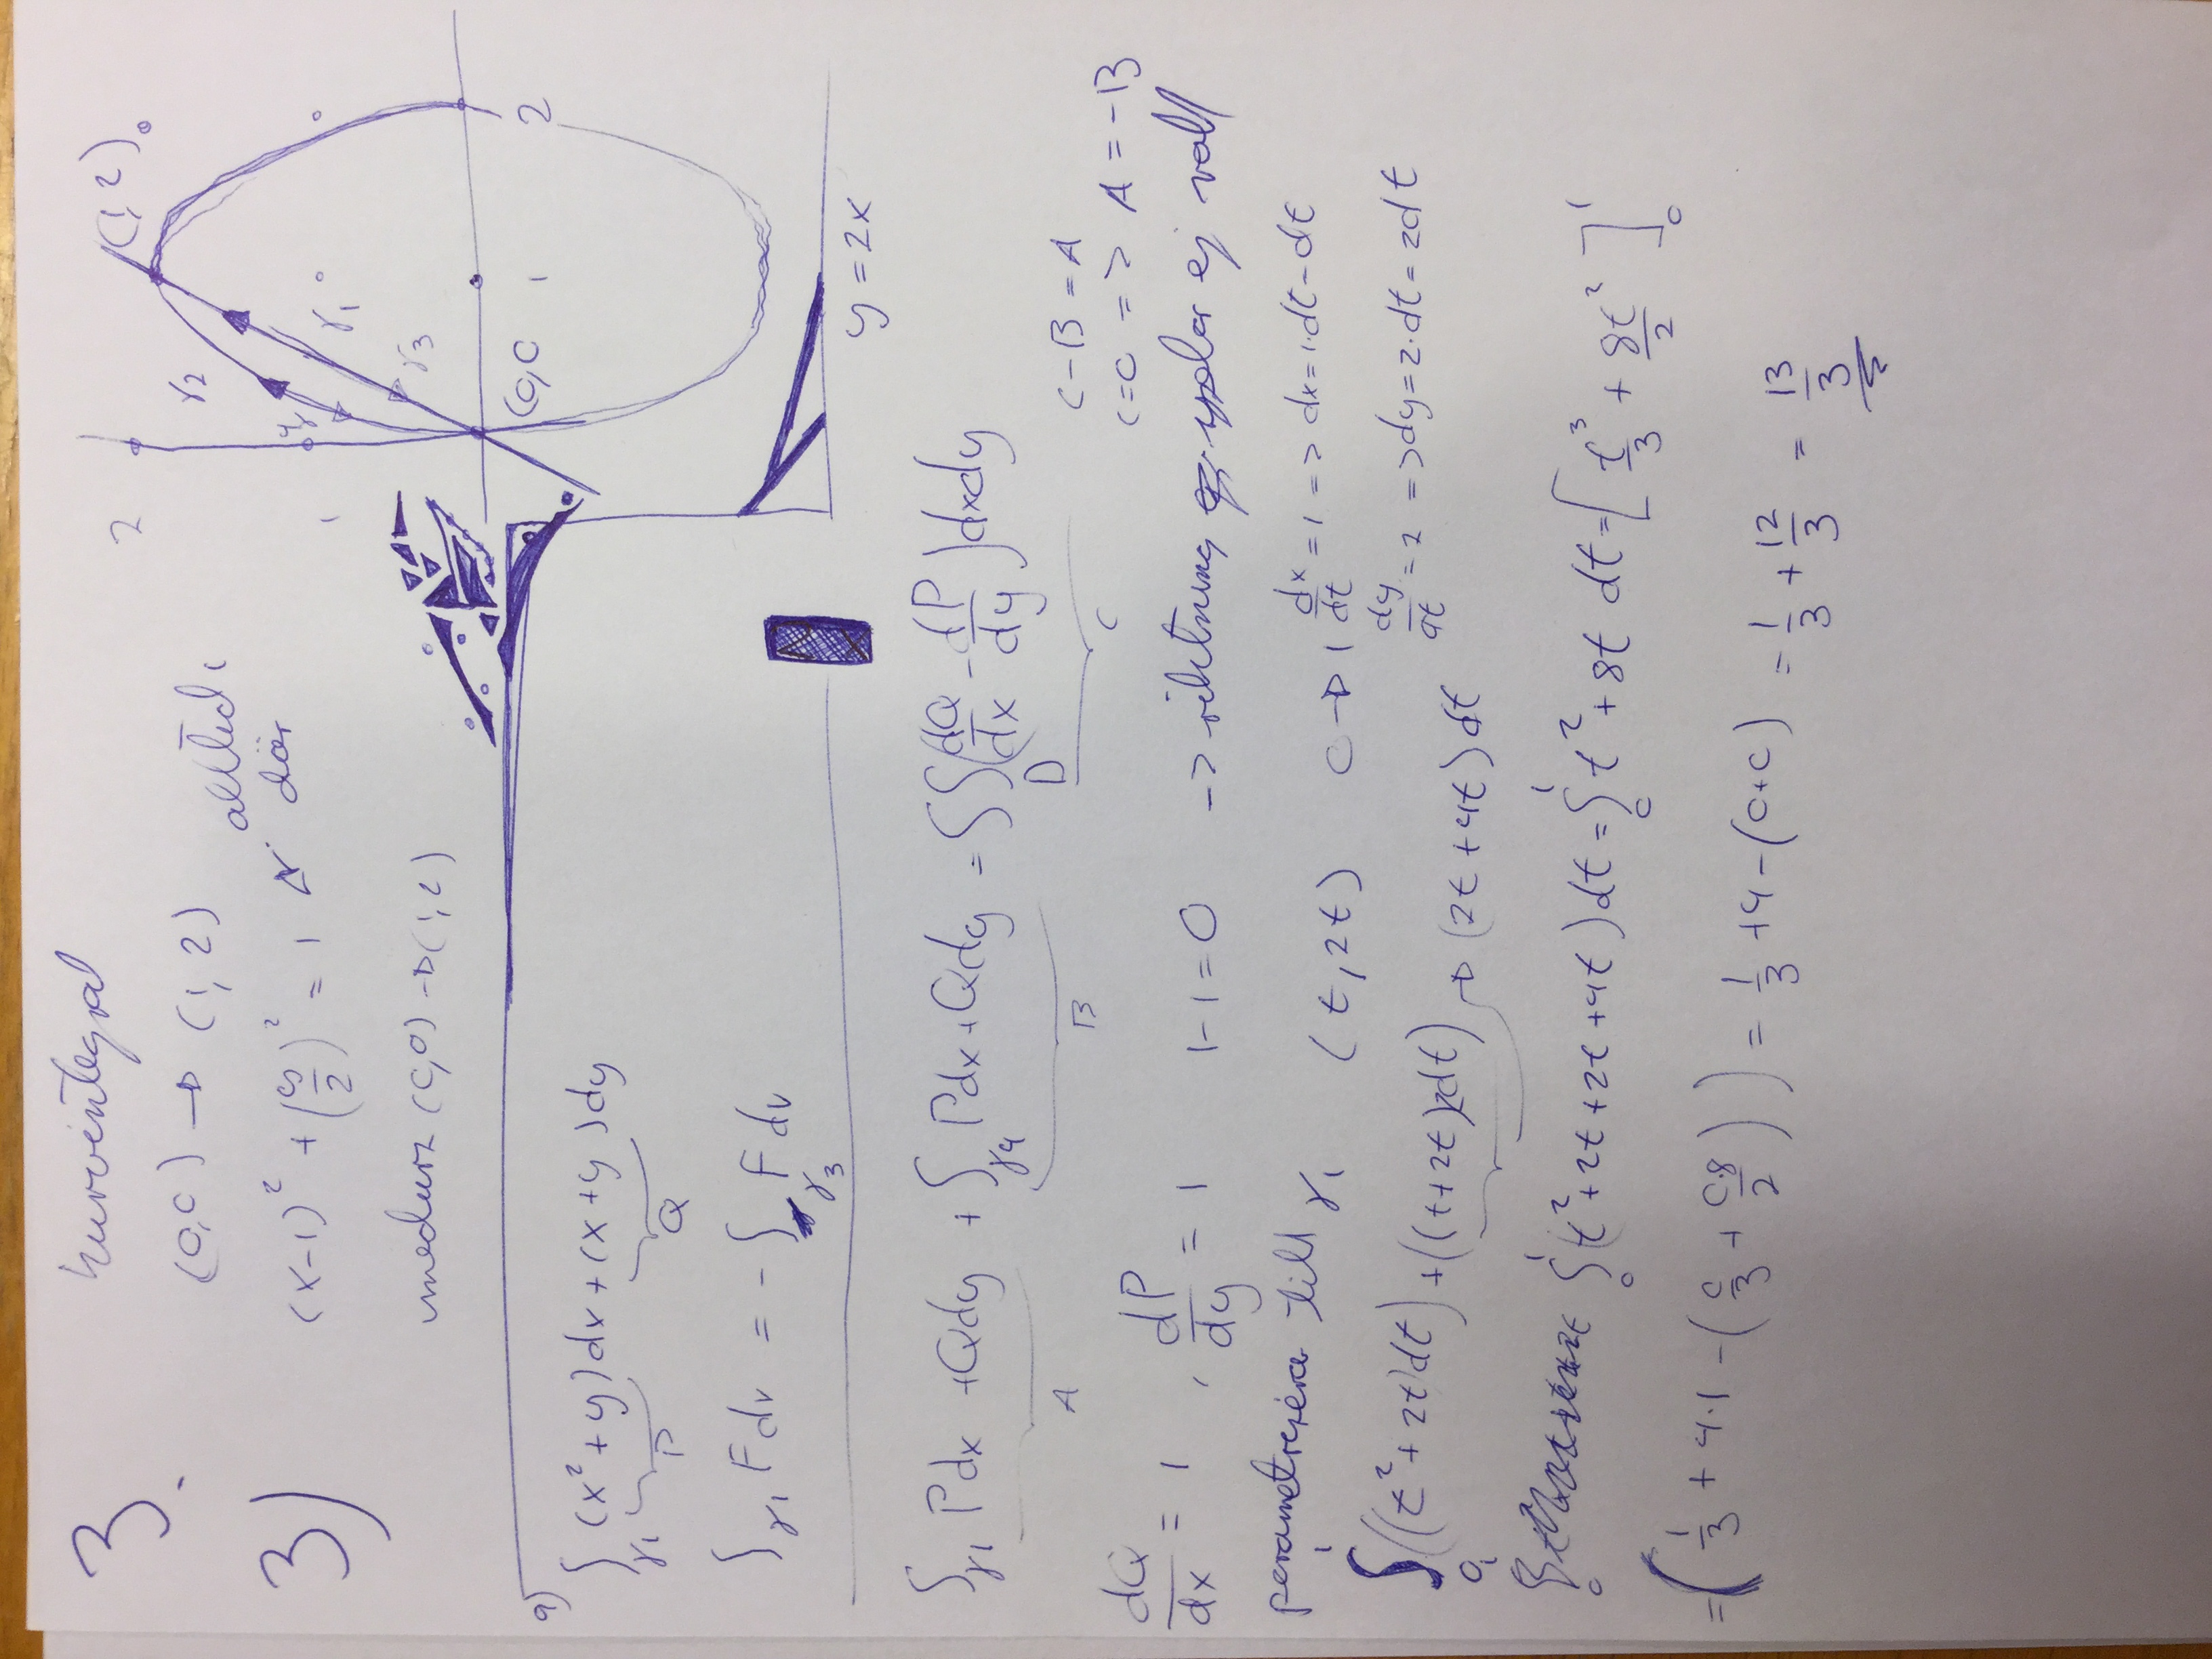 3.
kurvintegral
(0,0) → (1,2)
alltid i
där
3)
(x-1)² + (y/2)² = 1
medurs (0,0) → (1,2)
2
(1,2)
γ2
γ1
1
γ3
(0,0
1
2
y = 2x
a)
∫γ1 (x²+y)dx + (x+y)dy
P
Q
∫γ1 F dr = -∫γ3 F dr
∫γ1 Pdx + Qdy + ∫γ4 Pdx + Qdy = ∫∫D (dQ/dx - dP/dy)dxdy
A
B
C
C-B = A
C=0 => A = -B
dQ/dx = 1 , dP/dy = 1 1-1=0 -> riktning spelar ej roll
parametrisera till γ1 (t, 2t) 0 → 1
dx/dt = 1 => dx=1·dt=dt
dy/dt = 2 => dy=2·dt=2dt
∫₀¹ ((t²+2t)dt) + ((t+2t)2dt) → (2t+4t)dt
∫₀¹ (t²+2t+2t+4t)dt = ∫₀¹ t²+8t dt = [t³/3 + 8t²/2]₀¹
= (1/3 + 4·1 - (0/3 + 0·8/2)) = 1/3 + 4 - (0+0) = 1/3 + 12/3 = 13/3